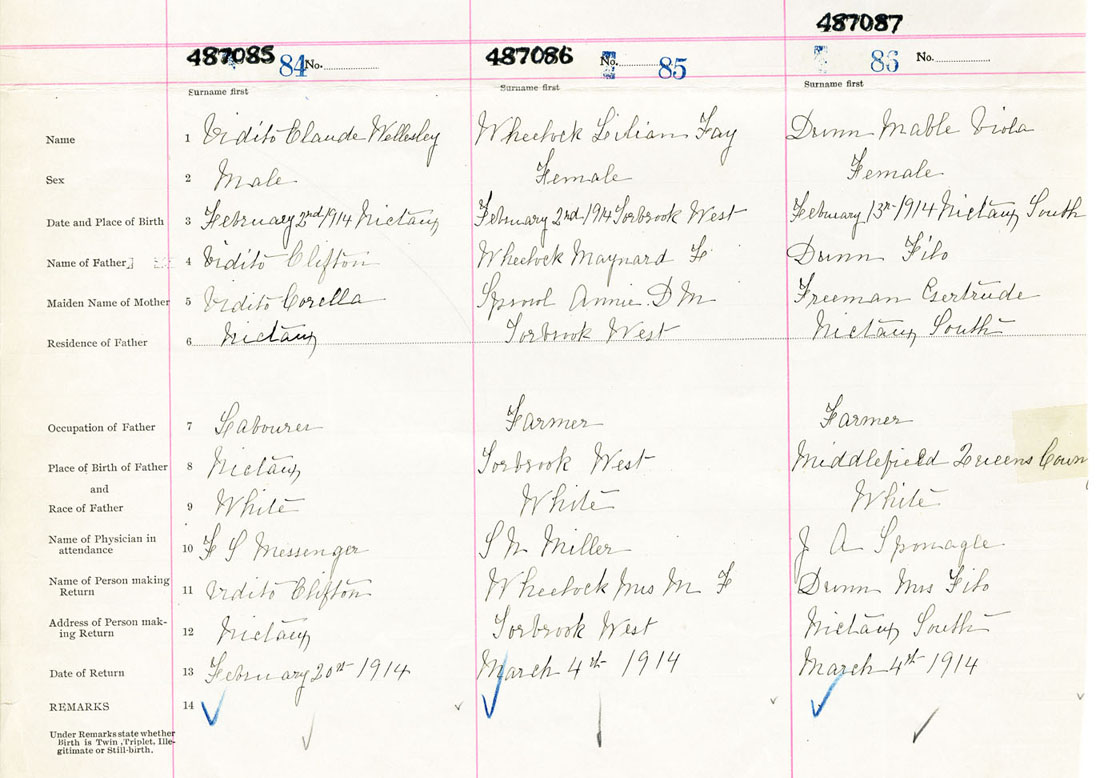 487087
487085 84 No. 487086 No. 85 86 No.
Surname first Surname first Surname first
Name 1 Vidito Claude Wellesley Wheelock Lilian Fay Dunn Mable Viola
Sex 2 Male Female Female
Date and Place of Birth 3 February 2nd 1914 Nictaux February 2nd 1914 Torbrook West February 13th 1914 Nictaux South
Name of Father 4 Vidito Clifton Wheelock Maynard F Dunn Filo
Maiden Name of Mother 5 Vidito Corella Sproul Annie D M Freeman Gertrude
Residence of Father 6 Nictaux Torbrook West Nictaux South
Occupation of Father 7 Labourer Farmer Farmer
Place of Birth of Father 8 Nictaux Torbrook West Middlefield Queens Coun
and
Race of Father 9 White White White
Name of Physician in
attendance 10 F S Messenger S N Miller J A Sponagle
Name of Person making
Return 11 Vidito Clifton Wheelock Mrs M F Dunn Mrs Filo
Address of Person mak-
ing Return 12 Nictaux Torbrook West Nictaux South
Date of Return 13 February 20th 1914 March 4th 1914 March 4th 1914
REMARKS 14
Under Remarks state whether
Birth is Twin, Triplet, Ille-
gitimate or Still-birth.